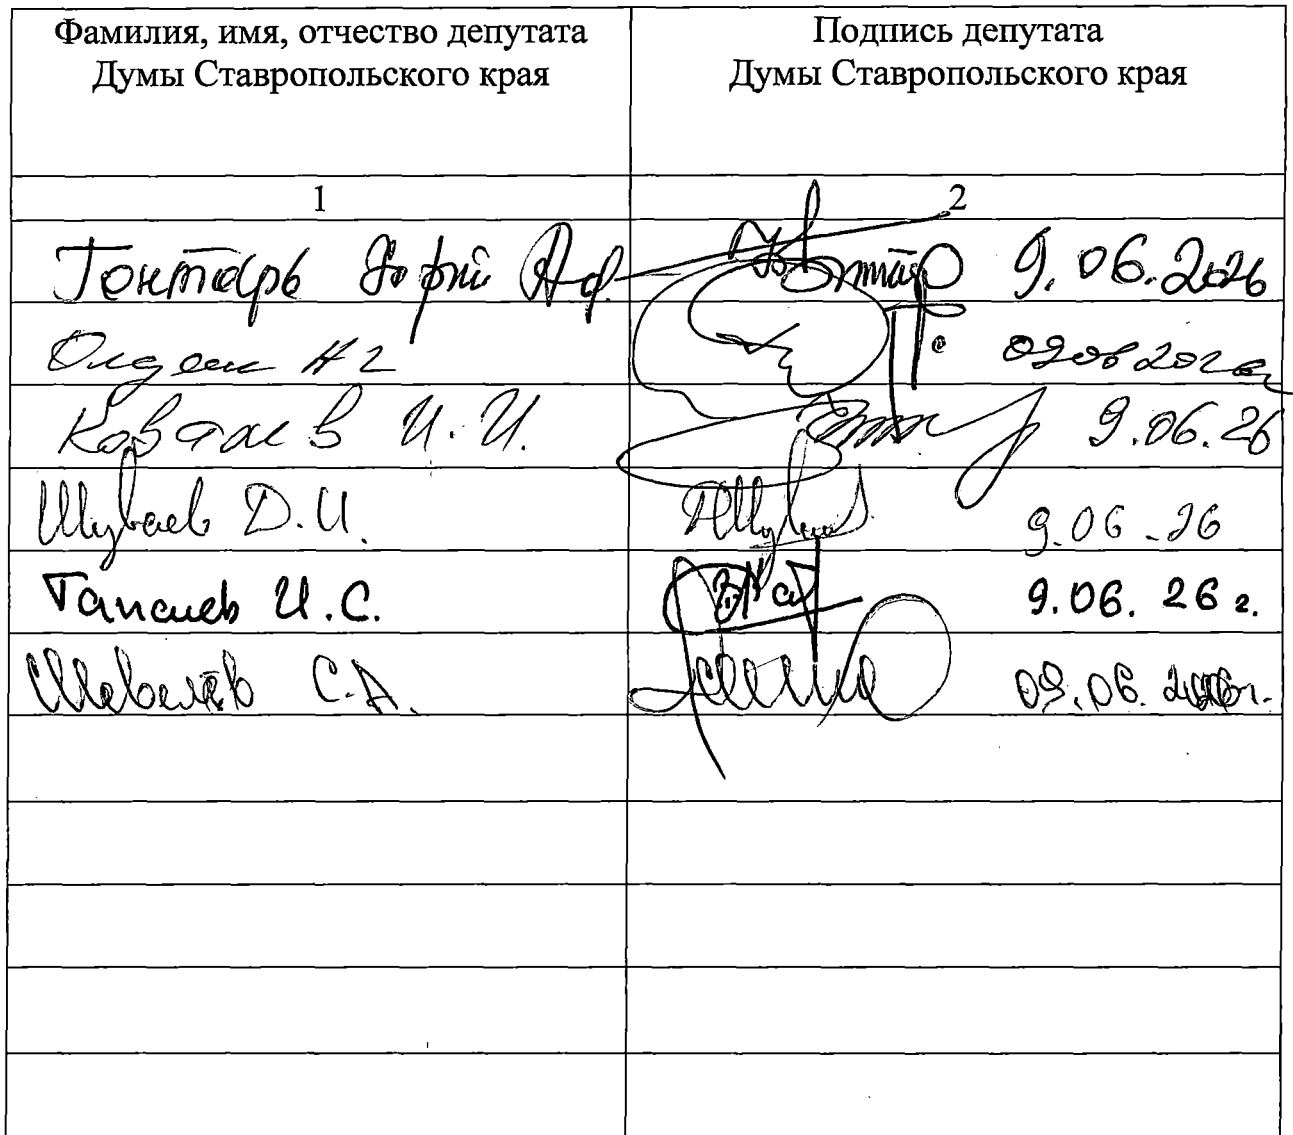 Фамилия, имя, отчество депутата
Думы Ставропольского края
Подпись депутата
Думы Ставропольского края
1
2
Гонтарь Юрий Аф. 9.06.2026
09 06 202
И.И. 9.06.26
Шуваев Д.И. 9.06.26
Тапсиев И.С. 9.06.26 г.
Шевелёв С.А. 09.06.2026г.